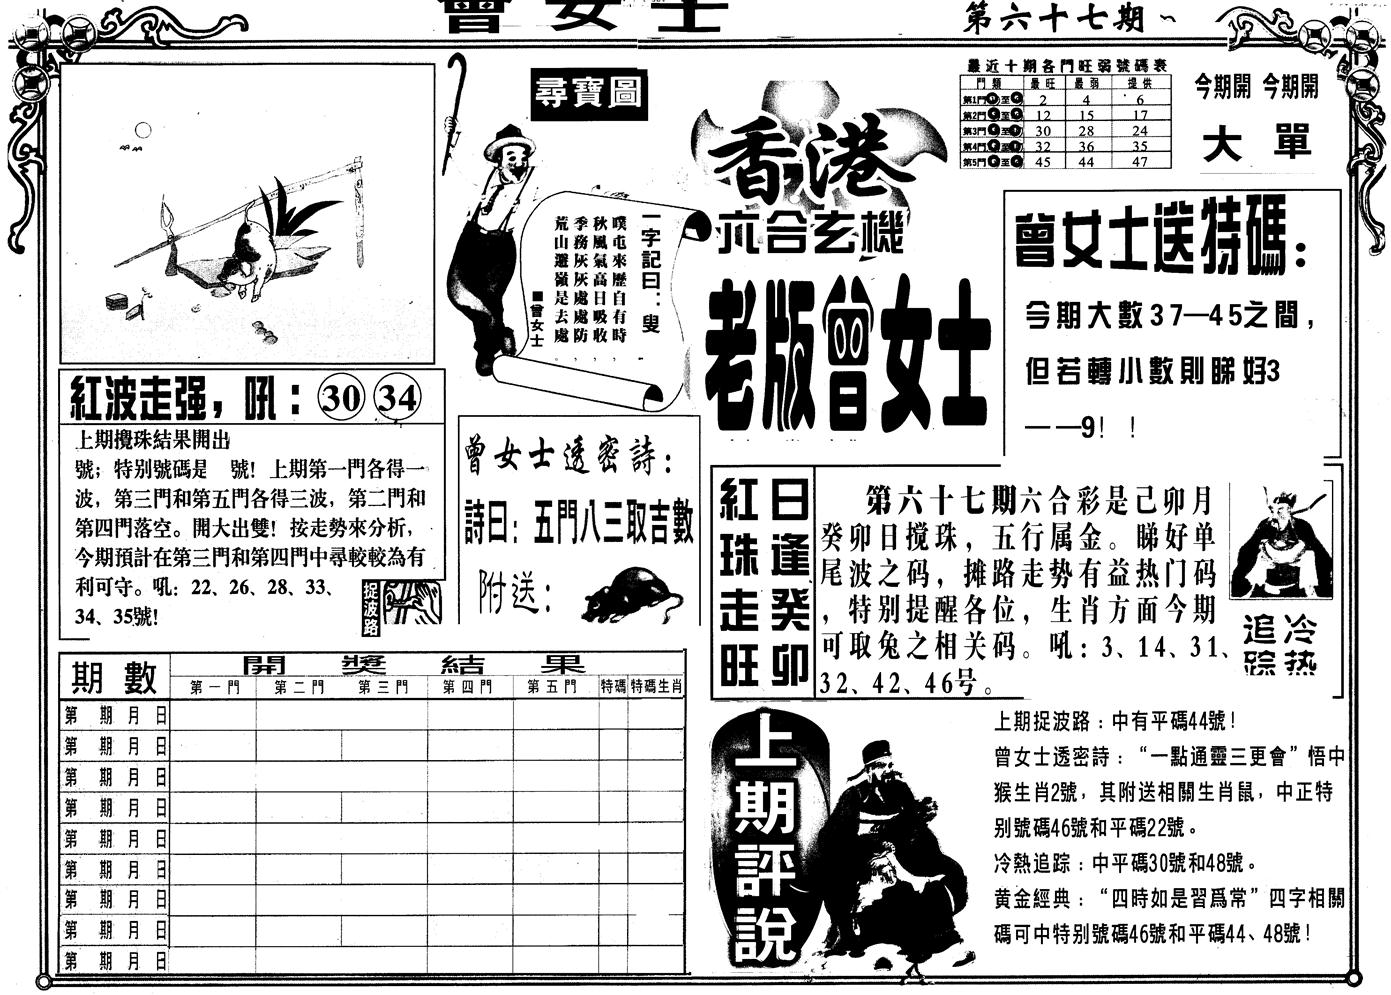 曾女士
第六十七期
尋寶圖
一字記曰：叟
噗屯來歷自有時，
秋風氣高日吸收，
季務灰灰處處防，
荒山遯嶺是去處。
曾女士
香港
六合玄機
老版曾女士
最近十期各門旺弱號碼表
門類 最旺 最弱 提供
第1門 至 2 4 6
第2門 至 12 15 17
第3門 至 30 28 24
第4門 至 32 36 35
第5門 至 45 44 47
今期開 今期開
大 單
曾女士送特碼：
今期大數37—45之間，
但若轉小數則睇好3
——9！！
紅波走强，吼：30 34
上期攪珠結果開出
號；特別號碼是 號！上期第一門各得一
波，第三門和第五門各得三波，第二門和
第四門落空。開大出雙！按走勢來分析，
今期預計在第三門和第四門中尋較較為有
利可守。吼：22、26、28、33、
34、35號！
捉波路
曾女士透密詩：
詩曰：五門八三取吉數
附送：
日逢癸卯
紅珠走旺
第六十七期六合彩是己卯月
癸卯日搅珠，五行属金。睇好单
尾波之码，摊路走势有益热门码
，特别提醒各位，生肖方面今期
可取兔之相关码。吼：3、14、31、
32、42、46号。
冷热
追踪
期數 開獎結果
第一門 第二門 第三門 第四門 第五門 特碼 特碼生肖
第 期 月 日
第 期 月 日
第 期 月 日
第 期 月 日
第 期 月 日
第 期 月 日
第 期 月 日
第 期 月 日
第 期 月 日
上期評說
上期捉波路：中有平碼44號！
曾女士透密詩：“一點通靈三更會”悟中
猴生肖2號，其附送相關生肖鼠，中正特
別號碼46號和平碼22號。
冷熱追踪：中平碼30號和48號。
黃金經典：“四時如是習爲常”四字相關
碼可中特別號碼46號和平碼44、48號！